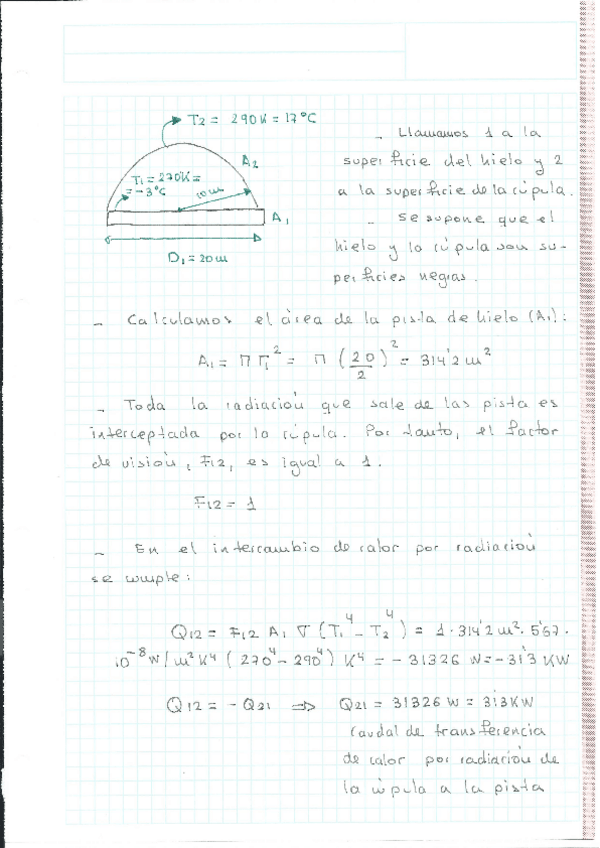 T2 = 290K = 17°C
A2
T1 = 270K =
= -3°C
10m
A1
D1 = 20m
- Llamamos 1 a la
superficie del hielo y 2
a la superficie de la cúpula.
- Se supone que el
hielo y la cúpula son su-
perficies negras.
- Calculamos el área de la pista de hielo (A1):
A1 = π r1² = π (20/2)² = 314'2 m²
- Toda la radiación que sale de las pista es
interceptada por la cúpula. Por tanto, el factor
de visión, F12, es igual a 1.
F12 = 1
- En el intercambio de calor por radiación
se cumple:
Q12 = F12 A1 σ (T1⁴ - T2⁴) = 1 · 314'2 m² · 5'67 ·
10⁻⁸ W/m² K⁴ (270⁴ - 290⁴) K⁴ = - 31326 W = - 31'3 KW
Q12 = - Q21 ⇒ Q21 = 31326 W = 31'3 KW
Caudal de transferencia
de calor por radiación de
la cúpula a la pista